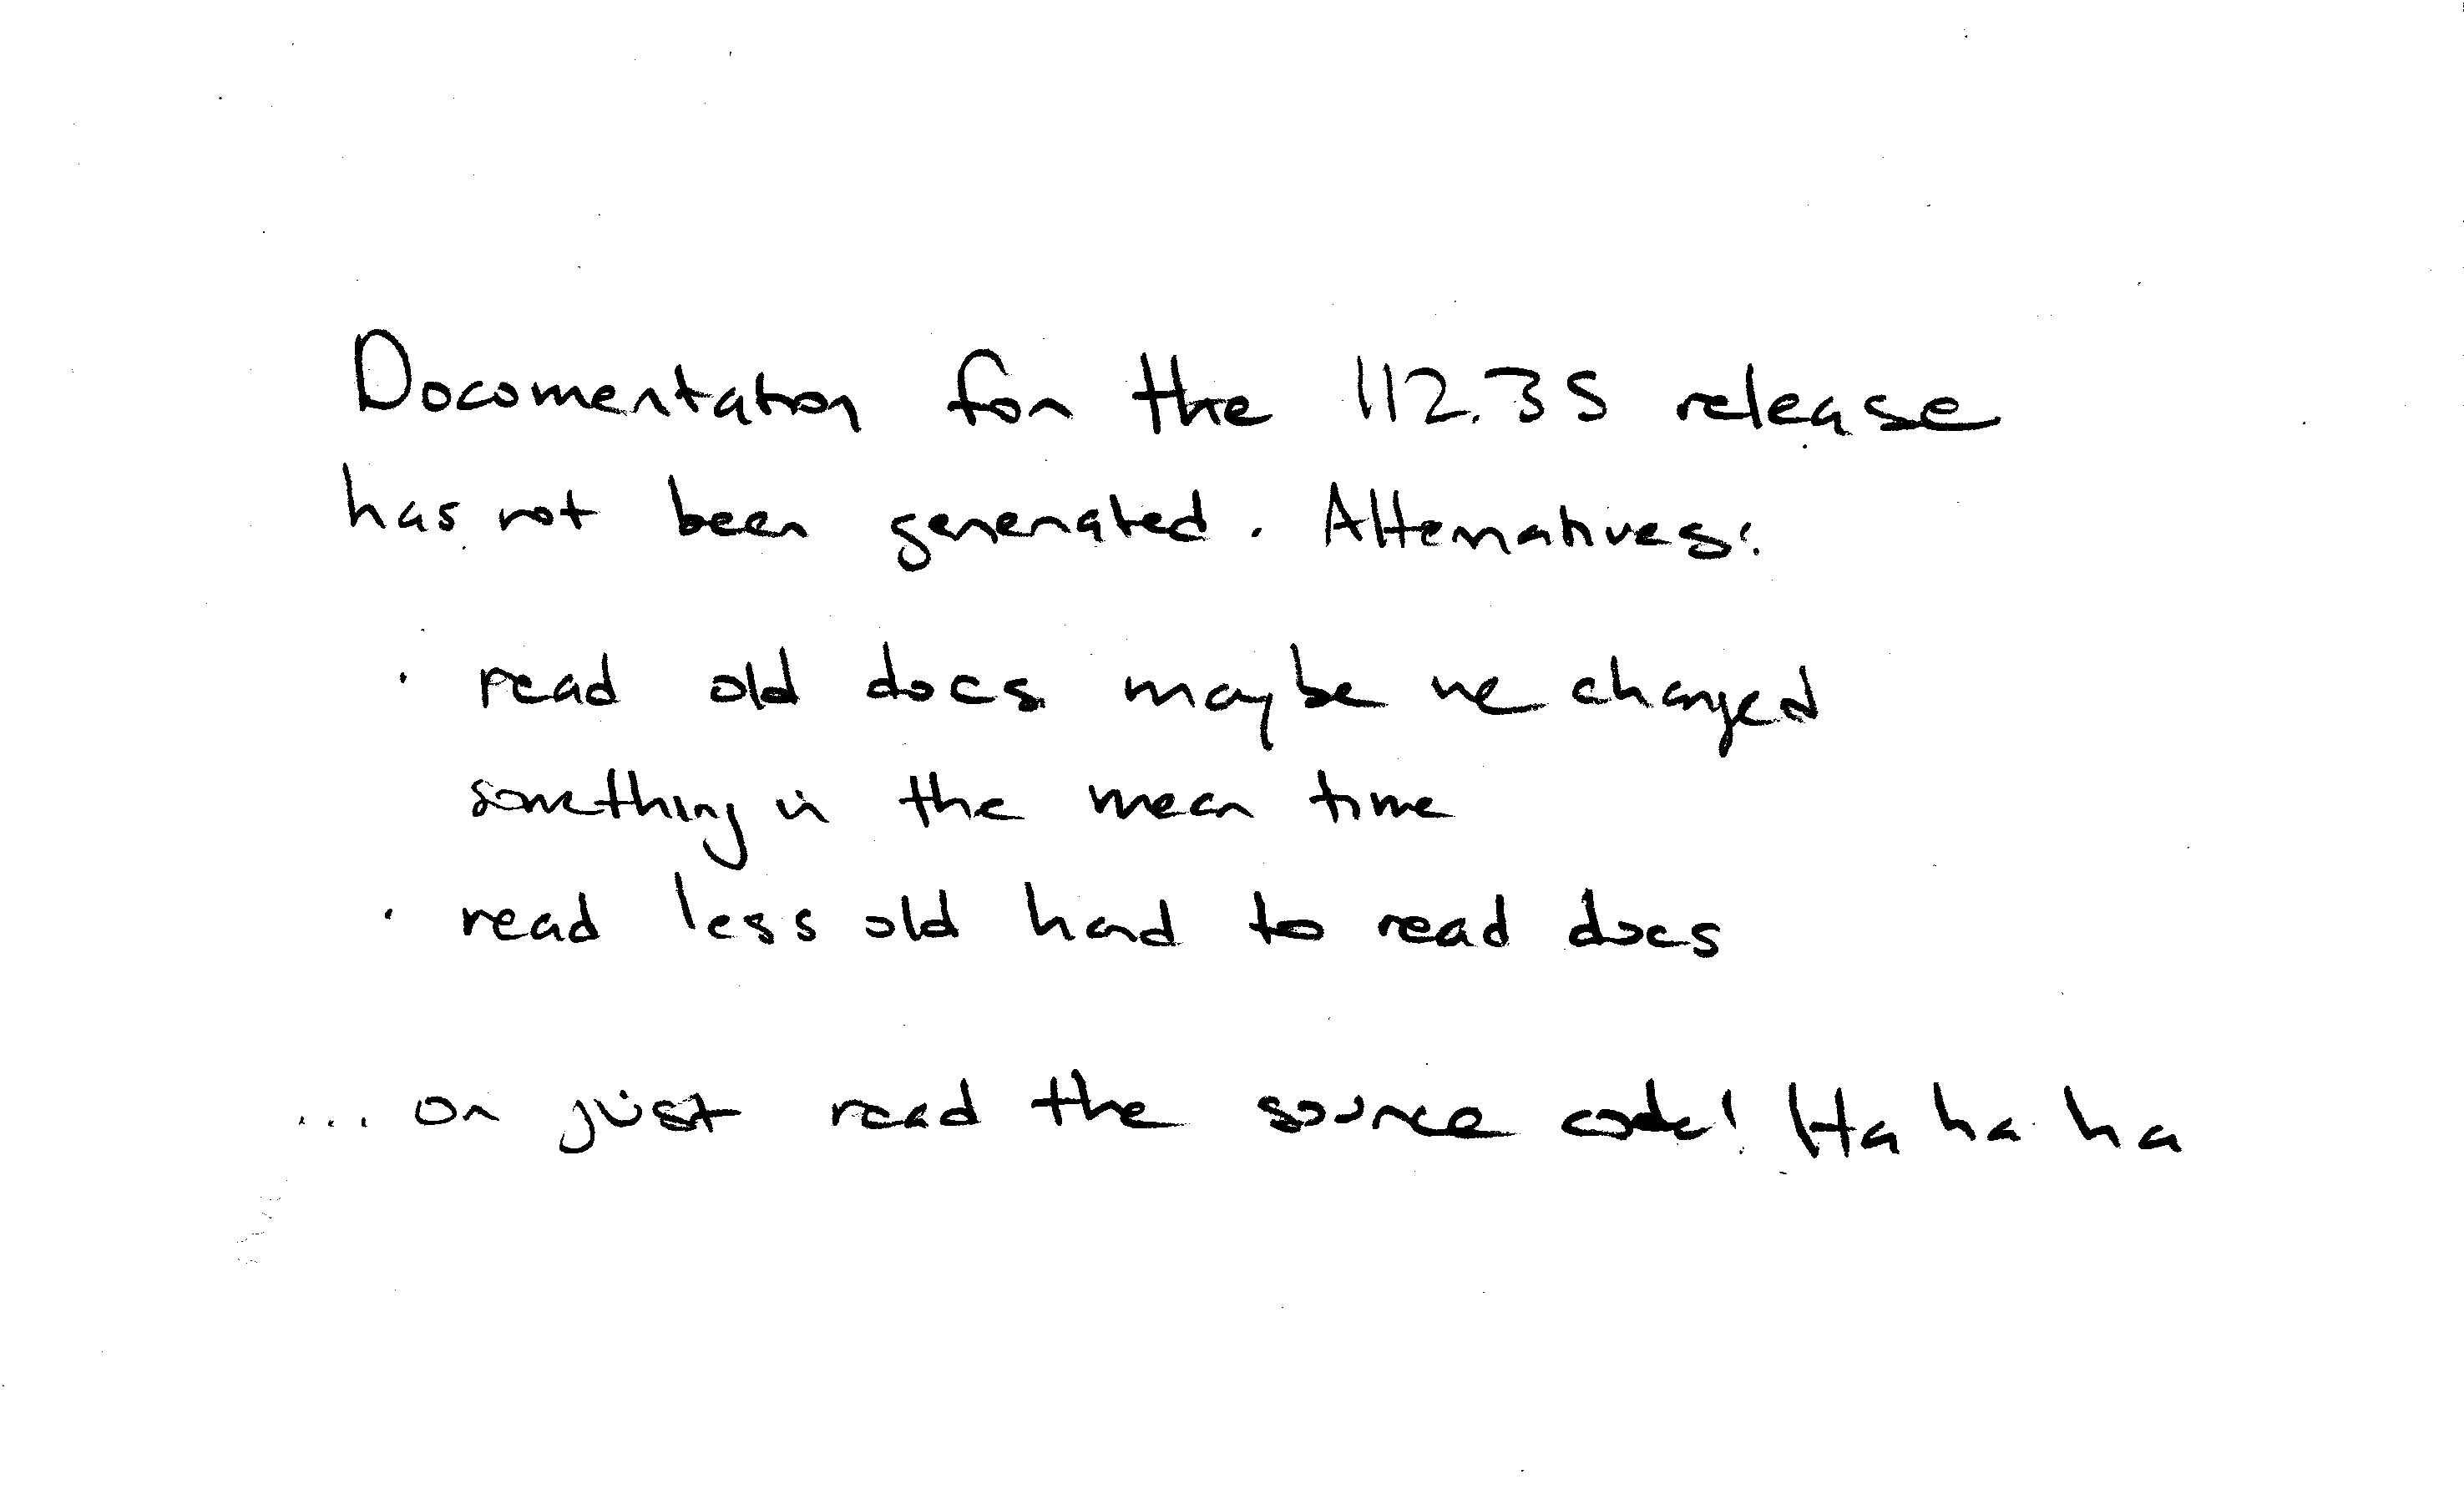 Documentation for the 112.35 release
has not been generated. Alternatives:
· read old docs maybe we changed
something in the mean time
· read less old hard to read docs
... or just read the source code! Ha ha ha